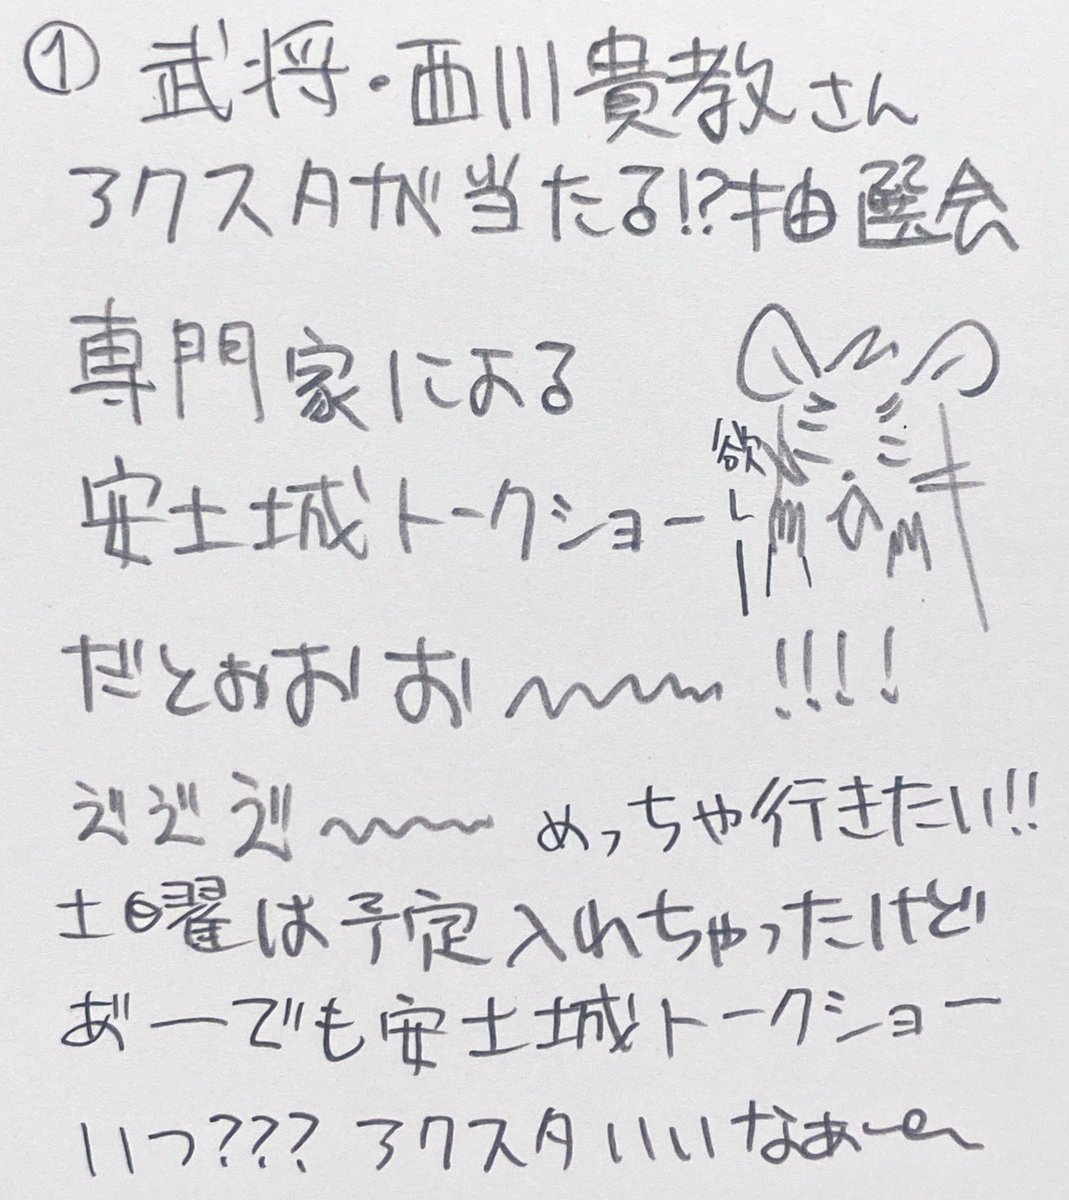 ① 武将・西川貴教さん
アクスタが当たる!?抽選会
専門家による
欲しー
安土城トークショー
だとぉおお〜〜〜!!!!
え゛え゛え゛〜〜〜 めっちゃ行きたい!!
土曜は予定入れちゃったけど
あ゛ーでも安土城トークショー
いつ??? アクスタいいなぁ〜